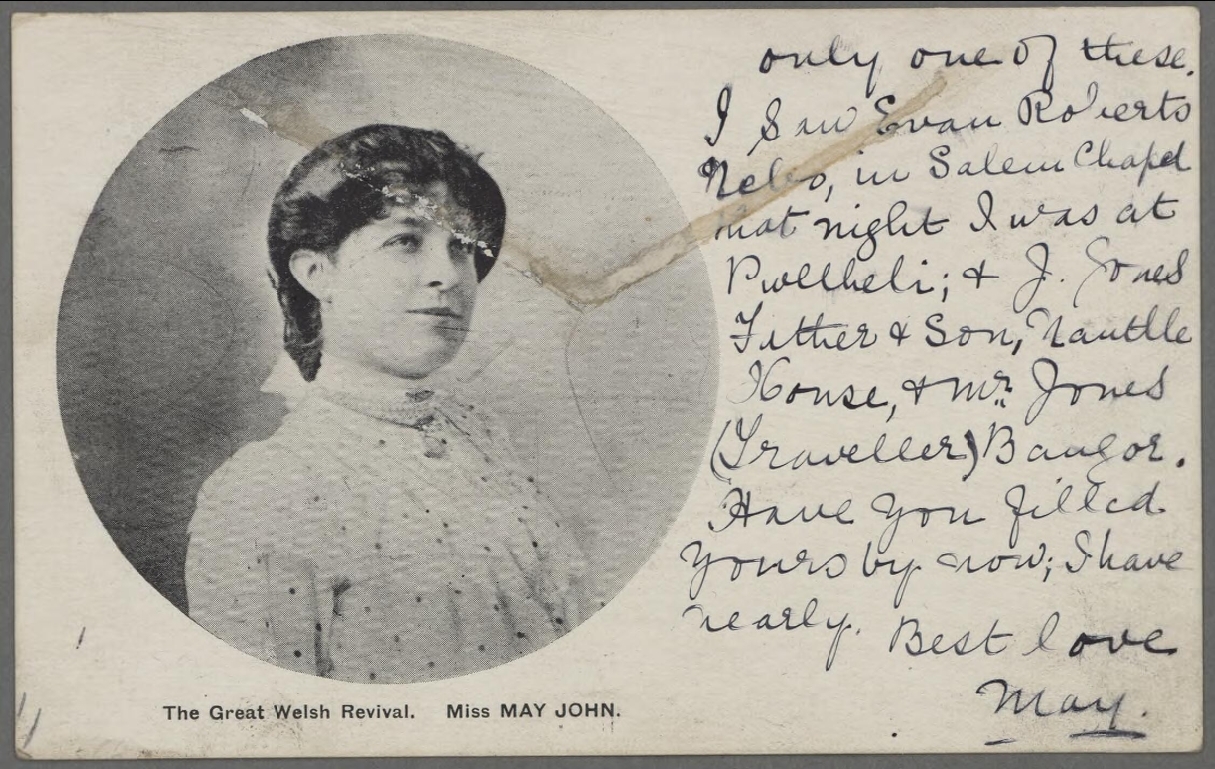 only one of these.
I saw Evan Roberts
in Salem Chapel
that night I was at
Pwllheli; & J. Jones
Father & Son, Nantlle
House, & Mr. Jones
(Traveller) Bangor.
Have you filled
yours by now; I have
nearly. Best love
May.
The Great Welsh Revival. Miss MAY JOHN.